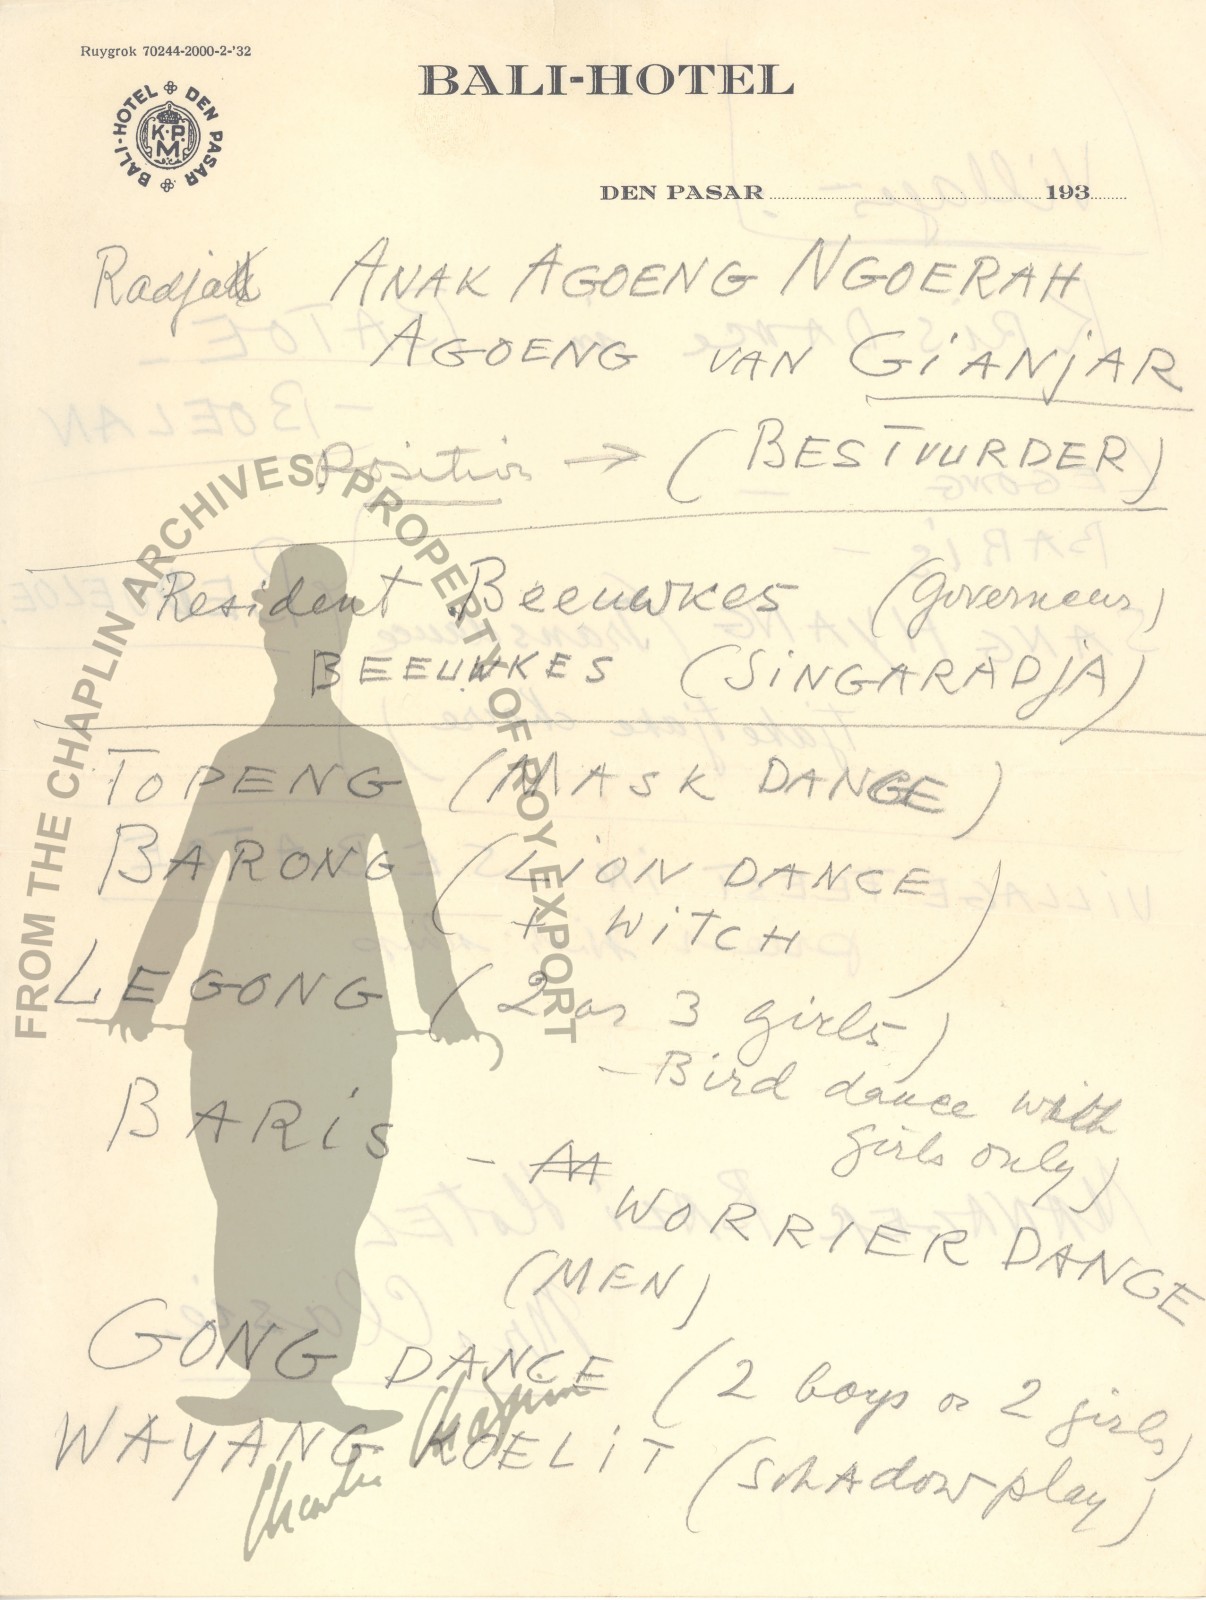 Ruygrok 70244-2000-2-'32
BALI-HOTEL
BALI-HOTEL DEN PASAR
K.P.M
DEN PASAR 193
Radja ANAK AGOENG NGOERAH
AGOENG VAN GIANJAR
Position → (BESTUURDER)
Resident Beeuwkes (Governeur)
BEEUWKES (SINGARADJA)
TOPENG (MASK DANCE)
BARONG (LION DANCE
+ WITCH)
LEGONG (2 or 3 girls)
- Bird dance with
girls only)
BARIS - WORRIER DANCE
(MEN)
GONG DANCE (2 boys or 2 girls)
WAYANG KOELIT (schadow play)
FROM THE CHAPLIN ARCHIVES, PROPERTY OF ROY EXPORT
Charlie Chaplin